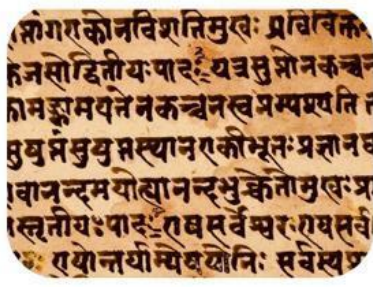 नविंशतिमुखः प्रविविक्त
जसोद्वितीयःपादः२यत्रसुप्तोनकच्चन
कामङ्कामयतेनकच्चनस्वप्नम्पश्यति
सुषुप्तंसुषुप्तस्थानएकीभूतःप्रज्ञानघ
वानन्दमयोह्यानन्दभुक्चेतोमुखःप्रा
स्तृतीयःपादः३एषसर्वेश्वरःएषसर्व
एषोन्तर्याम्येषयोनिः सर्वस्यप्र